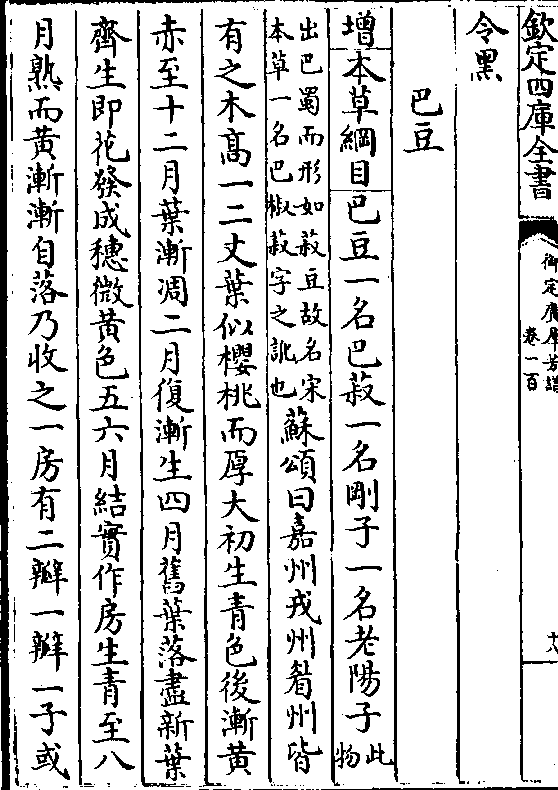 欽定四庫全書
御定廣羣芳譜
卷一百
十八
令黑
巴豆
增本草綱目巴豆一名巴菽一名剛子一名老陽子此物
出巴蜀而形如菽豆故名宋
本草一名巴椒菽字之訛也
蘇頌曰嘉州戎州眉州皆
有之木髙一二丈葉似櫻桃而厚大初生青色後漸黄
赤至十二月葉漸凋二月復漸生四月舊葉落盡新葉
齊生即花發成穗微黄色五六月結實作房生青至八
月熟而黄漸漸自落乃收之一房有二瓣一瓣一子或